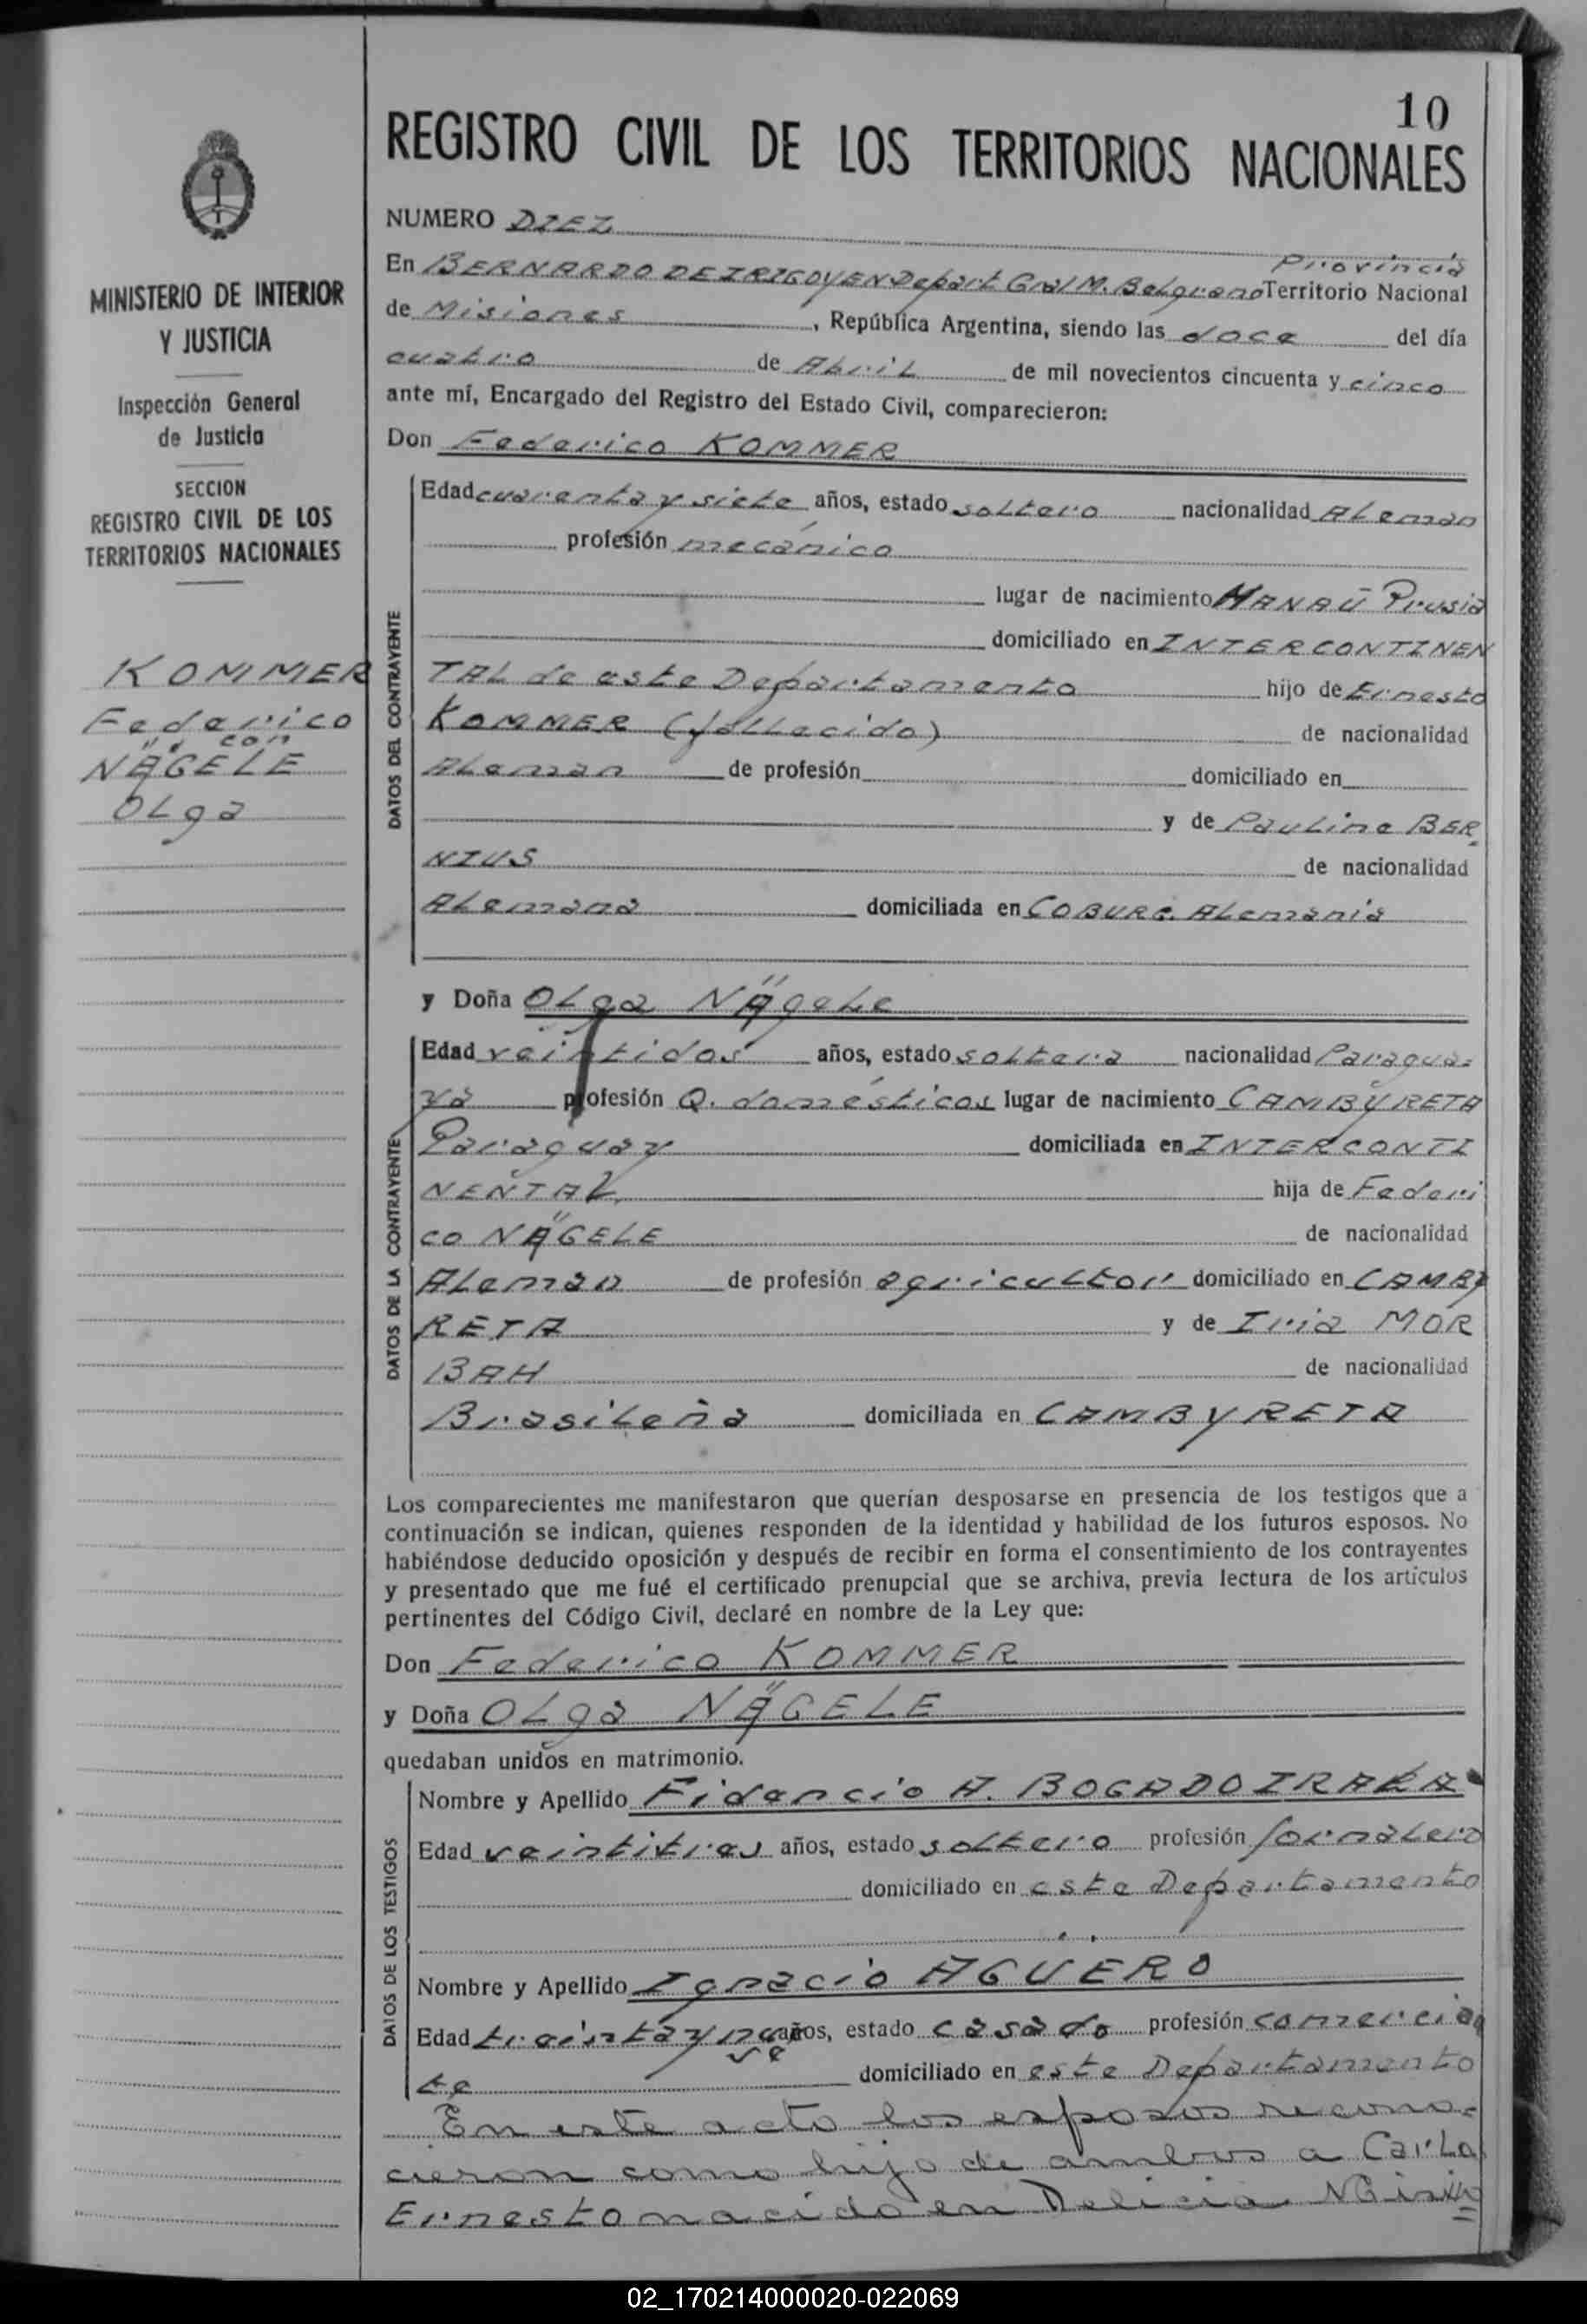 10
REGISTRO CIVIL DE LOS TERRITORIOS NACIONALES
MINISTERIO DE INTERIOR
Y JUSTICIA
Inspección General
de Justicia
SECCION
REGISTRO CIVIL DE LOS
TERRITORIOS NACIONALES
KOMMER
Federico
con
NÄGELE
Olga
NUMERO DIEZ
Provincia
En BERNARDO DE IRIGOYEN Depart Gral M. Belgrano Territorio Nacional
de Misiones, República Argentina, siendo las doce del día
cuatro de Abril de mil novecientos cincuenta y cinco
ante mí, Encargado del Registro del Estado Civil, comparecieron:
Don Federico KOMMER
DATOS DEL CONTRAYENTE
Edad cuarenta y siete años, estado soltero nacionalidad Aleman
profesión mecánico
lugar de nacimiento HANAU Prusia
domiciliado en INTERCONTINEN
TAL de este Departamento hijo de Ernesto
KOMMER (fallecido) de nacionalidad
Aleman de profesión domiciliado en
y de Pauline BER
NIUS de nacionalidad
Alemana domiciliada en COBURG. Alemania
y Doña Olga NÄgele
DATOS DE LA CONTRAYENTE
Edad veintidos años, estado soltera nacionalidad Paragua=
ya profesión Q. domésticos lugar de nacimiento CAMBYRETA
Paraguay domiciliada en INTERCONTI
NENTAL. hija de Federi
co NÄGELE de nacionalidad
Aleman de profesión agricultor domiciliado en CAMBY
RETA y de Iria MOR
BAH de nacionalidad
Brasileña domiciliada en CAMBYRETA
Los comparecientes me manifestaron que querían desposarse en presencia de los testigos que a
continuación se indican, quienes responden de la identidad y habilidad de los futuros esposos. No
habiéndose deducido oposición y después de recibir en forma el consentimiento de los contrayentes
y presentado que me fué el certificado prenupcial que se archiva, previa lectura de los artículos
pertinentes del Código Civil, declaré en nombre de la Ley que:
Don Federico KOMMER
y Doña Olga NÄGELE
quedaban unidos en matrimonio.
DATOS DE LOS TESTIGOS
Nombre y Apellido Fidencio A. BOGADO IRALA
Edad veintitres años, estado soltero profesión jornalero
domiciliado en este Departamento
Nombre y Apellido Ignacio AGÜERO
Edad treinta y nueve años, estado casado profesión comercian
te domiciliado en este Departamento
En este acto los esposos recono=
cieron como hijo de ambos a Carlo
Ernesto nacido en Delicia Misio
02_170214000020-022069